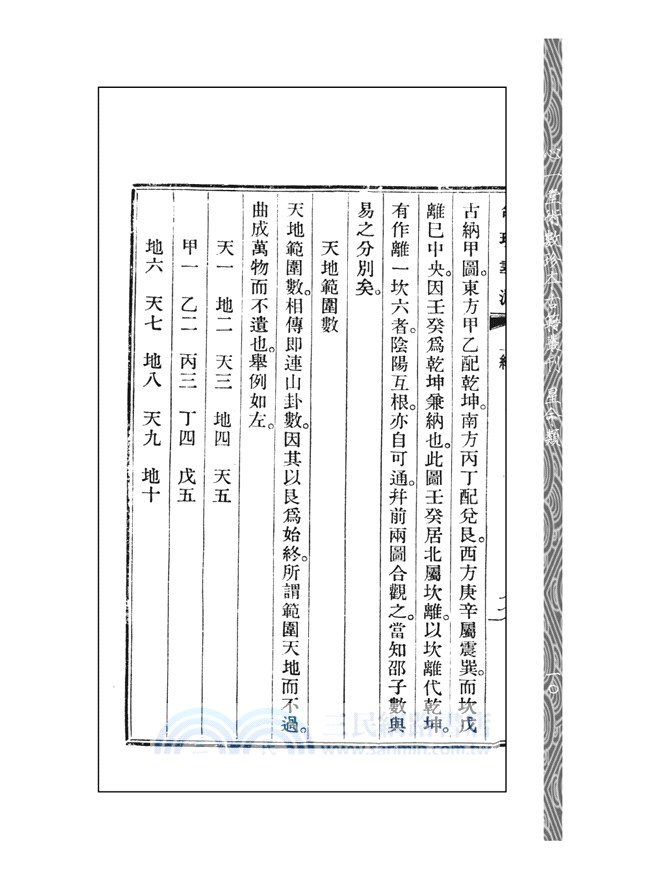 心一堂術數珍本古籍叢刊 星命類
一〇
古納甲圖。東方甲乙配乾坤。南方丙丁配兌艮。西方庚辛屬震巽。而坎戊
離巳中央。因壬癸爲乾坤兼納也。此圖壬癸居北屬坎離。以坎離代乾坤。
有作離一坎六者。陰陽互根。亦自可通。幷前兩圖合觀之。當知邵子數與
易之分別矣。
天地範圍數
天地範圍數。相傳即連山卦數。因其以艮爲始終。所謂範圍天地而不過。
曲成萬物而不遺也。舉例如左。
天一 地二 天三 地四 天五
甲一 乙二 丙三 丁四 戊五
地六 天七 地八 天九 地十
三民網路書店
www.sanmin.com.tw